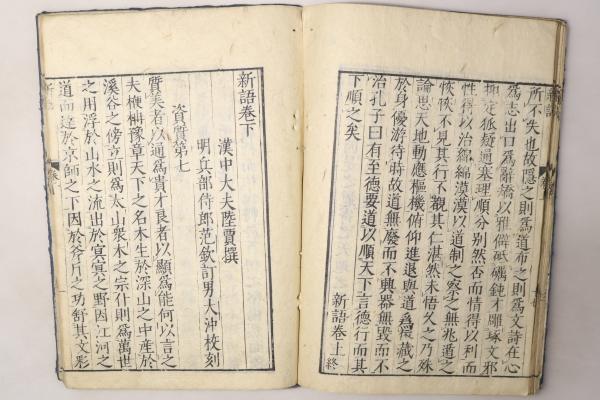 所不失也故隱之則爲道布之則爲文詩在心
爲志出口爲辭矯以雅僻砥礪鈍才雕琢文邪
抑定狐疑通塞理順分別然否而情得以利而
性得以治緜緜漠漠以道制之察之無兆遁之
恢恢不見其行不覩其仁湛然未悟久之乃殊
論思天地動應樞機俯仰進退與道爲依藏之
於身優游待時故道無廢而不興器無毁而不
治孔子曰有至德要道以順天下言德行而其
下順之矣
新語卷上終
新語卷下
漢中大夫陸賈撰
明兵部侍郎范欽訂男大沖校刻
資質第七
質美者以通爲貴才良者以顯爲能何以言之
夫楩柟豫章天下之名木生於深山之中產於
溪谷之傍立則爲太山衆木之宗仆則爲萬世
之用浮於山水之流出於冥冥之野因江河之
道而達於京師之下因於斧斤之功舒其文彩